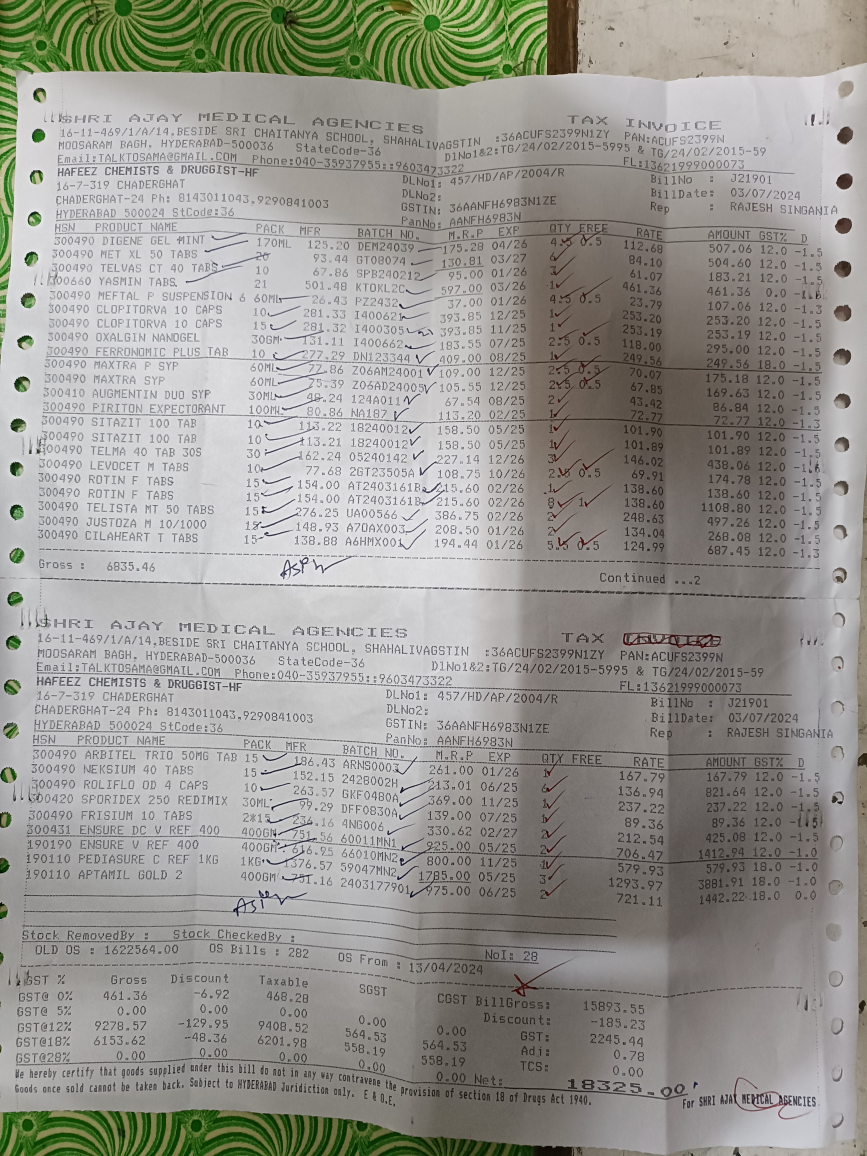 SHRI AJAY MEDICAL AGENCIES TAX INVOICE
16-11-469/1/A/14,BESIDE SRI CHAITANYA SCHOOL, SHAHALIVAGSTIN :36ACUFS2399N1ZY PAN:ACUFS2399N
MOOSARAM BAGH, HYDERABAD-500036 StateCode-36 DlNo1&2:TG/24/02/2015-5995 & TG/24/02/2015-59
Email:TALKTOSAMA@GMAIL.COM Phone:040-35937955::9603473322 FL:13621999000073
HAFEEZ CHEMISTS & DRUGGIST-HF DLNo1: 457/HD/AP/2004/R BillNo : J21901
16-7-319 CHADERGHAT DLNo2: BillDate: 03/07/2024
CHADERGHAT-24 Ph: 8143011043,9290841003 GSTIN: 36AANFH6983N1ZE Rep : RAJESH SINGANIA
HYDERABAD 500024 StCode:36 PanNo: AANFH6983N
HSN PRODUCT NAME PACK MFR BATCH NO. M.R.P EXP QTY FREE RATE AMOUNT GST% D
300490 DIGENE GEL MINT 170ML 125.20 DEM24039 175.28 04/26 4.5 0.5 112.68 507.06 12.0 -1.5
300490 MET XL 50 TABS 20 93.44 GT08074 130.81 03/27 6 84.10 504.60 12.0 -1.5
300490 TELVAS CT 40 TABS 10 67.86 SPB240212 95.00 01/26 3 61.07 183.21 12.0 -1.5
300660 YASMIN TABS 21 501.48 KTOKL2C 597.00 03/26 1 461.36 461.36 0.0
300490 MEFTAL P SUSPENSION 6 60ML 26.43 PZ2432 37.00 01/26 4.5 0.5 23.79 107.06 12.0 -1.3
300490 CLOPITORVA 10 CAPS 10 281.33 I400621 393.85 12/25 1 253.20 253.20 12.0 -1.5
300490 CLOPITORVA 10 CAPS 15 281.32 I400305 393.85 11/25 1 253.19 253.19 12.0 -1.5
300490 OXALGIN NANOGEL 30GM 131.11 I400662 183.55 07/25 2.5 0.5 118.00 295.00 12.0 -1.5
300490 FERRONOMIC PLUS TAB 10 277.29 DN123344 409.00 08/25 1 249.56 249.56 18.0 -1.5
300490 MAXTRA P SYP 60ML 77.86 Z06AM24001 109.00 12/25 2.5 0.5 70.07 175.18 12.0 -1.5
300490 MAXTRA SYP 60ML 75.39 Z06AD24005 105.55 12/25 2.5 0.5 67.85 169.63 12.0 -1.5
300410 AUGMENTIN DUO SYP 30ML 48.24 124A011 67.54 08/25 2 43.42 86.84 12.0 -1.5
300490 PIRITON EXPECTORANT 100ML 80.86 NA187 113.20 02/25 1 72.77 72.77 12.0 -1.3
300490 SITAZIT 100 TAB 10 113.22 18240012 158.50 05/25 1 101.90 101.90 12.0 -1.5
300490 SITAZIT 100 TAB 10 113.21 18240012 158.50 05/25 1 101.89 101.89 12.0 -1.5
300490 TELMA 40 TAB 30S 30 162.24 05240142 227.14 12/26 3 146.02 438.06 12.0
300490 LEVOCET M TABS 10 77.68 2GT23505A 108.75 10/26 2.5 0.5 69.91 174.78 12.0 -1.5
300490 ROTIN F TABS 15 154.00 AT2403161B 215.60 02/26 1 138.60 138.60 12.0 -1.5
300490 ROTIN F TABS 15 154.00 AT2403161B 215.60 02/26 8 1 138.60 1108.80 12.0 -1.5
300490 TELISTA MT 50 TABS 15 276.25 UA00566 386.75 02/26 2 248.63 497.26 12.0 -1.5
300490 JUSTOZA M 10/1000 15 148.93 A7OAX003 208.50 01/26 2 134.04 268.08 12.0 -1.5
300490 CILAHEART T TABS 15 138.88 A6HMX001 194.44 01/26 5.5 0.5 124.99 687.45 12.0 -1.3
Gross : 6835.46 Continued ...2
SHRI AJAY MEDICAL AGENCIES TAX INVOICE
16-11-469/1/A/14,BESIDE SRI CHAITANYA SCHOOL, SHAHALIVAGSTIN :36ACUFS2399N1ZY PAN:ACUFS2399N
MOOSARAM BAGH, HYDERABAD-500036 StateCode-36 DlNo1&2:TG/24/02/2015-5995 & TG/24/02/2015-59
Email:TALKTOSAMA@GMAIL.COM Phone:040-35937955::9603473322 FL:13621999000073
HAFEEZ CHEMISTS & DRUGGIST-HF DLNo1: 457/HD/AP/2004/R BillNo : J21901
16-7-319 CHADERGHAT DLNo2: BillDate: 03/07/2024
CHADERGHAT-24 Ph: 8143011043,9290841003 GSTIN: 36AANFH6983N1ZE Rep : RAJESH SINGANIA
HYDERABAD 500024 StCode:36 PanNo: AANFH6983N
HSN PRODUCT NAME PACK MFR BATCH NO. M.R.P EXP QTY FREE RATE AMOUNT GST% D
300490 ARBITEL TRIO 50MG TAB 15 186.43 ARNS0003 261.00 01/26 1 167.79 167.79 12.0 -1.5
300490 NEKSIUM 40 TABS 15 152.15 242B002H 213.01 06/25 6 136.94 821.64 12.0 -1.5
300490 ROLIFLO OD 4 CAPS 10 263.57 GKF0480A 369.00 11/25 1 237.22 237.22 12.0 -1.5
300420 SPORIDEX 250 REDIMIX 30ML 99.29 DFF0830A 139.00 07/25 1 89.36 89.36 12.0
300490 FRISIUM 10 TABS 2*15 236.16 4NG006 330.62 02/27 2 212.54 425.08 12.0 -1.5
300431 ENSURE DC V REF 400 400GM 751.56 60011MN1 925.00 05/25 2 706.47 1412.94 12.0 -1.0
190190 ENSURE V REF 400 400GM 616.95 66010MN2 800.00 11/25 1 579.93 579.93 18.0 -1.0
190110 PEDIASURE C REF 1KG 1KG 1376.57 59047MN2 1785.00 05/25 3 1293.97 3881.91 18.0 -1.0
190110 APTAMIL GOLD 2 400GM 751.16 2403177901 975.00 06/25 2 721.11 1442.22 18.0 0.0
Stock RemovedBy : Stock CheckedBy :
OLD OS : 1622564.00 OS Bills : 282 OS From : 13/04/2024 NoI: 28
GST % Gross Discount Taxable SGST CGST BillGross: 15893.55
GST@ 0% 461.36 -6.92 468.28 0.00 0.00 Discount: -185.23
GST@ 5% 0.00 0.00 0.00 GST: 2245.44
GST@12% 9278.57 -129.95 9408.52 564.53 564.53 Adj: 0.78
GST@18% 6153.62 -48.36 6201.98 558.19 558.19 TCS: 0.00
GST@28% 0.00 0.00 0.00 0.00 0.00 Net: 18325.00
We hereby certify that goods supplied under this bill do not in any way contravene the provision of section 18 of Drugs Act 1940.
Goods once sold cannot be taken back. Subject to HYDERABAD Juridiction only. E & O.E. For SHRI AJAY MEDICAL AGENCIES